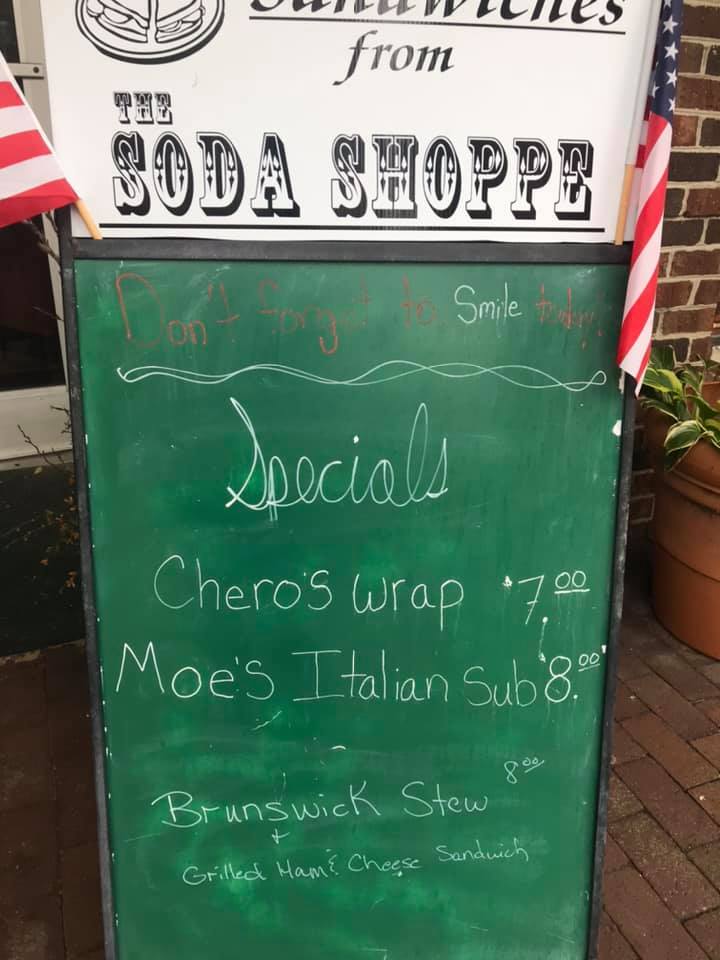 Sandwiches
from
THE
SODA SHOPPE
Don't forget to Smile today!
Specials
Chero's wrap $7.00
Moe's Italian Sub 8.00
Brunswick Stew 8.00
+
Grilled Ham & Cheese Sandwich